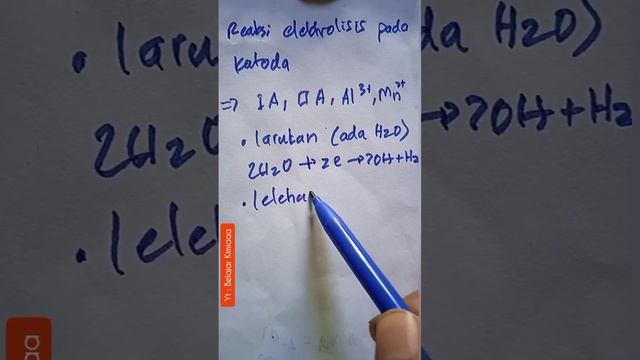 Reaksi elektrolisis pada
katoda
⇒ IA, IIA, Al³⁺, Mn²⁺
• larutan (ada H2O)
2H2O + 2e → 2OH + H2
• leleha
Yt : Belajar Kimiaaa